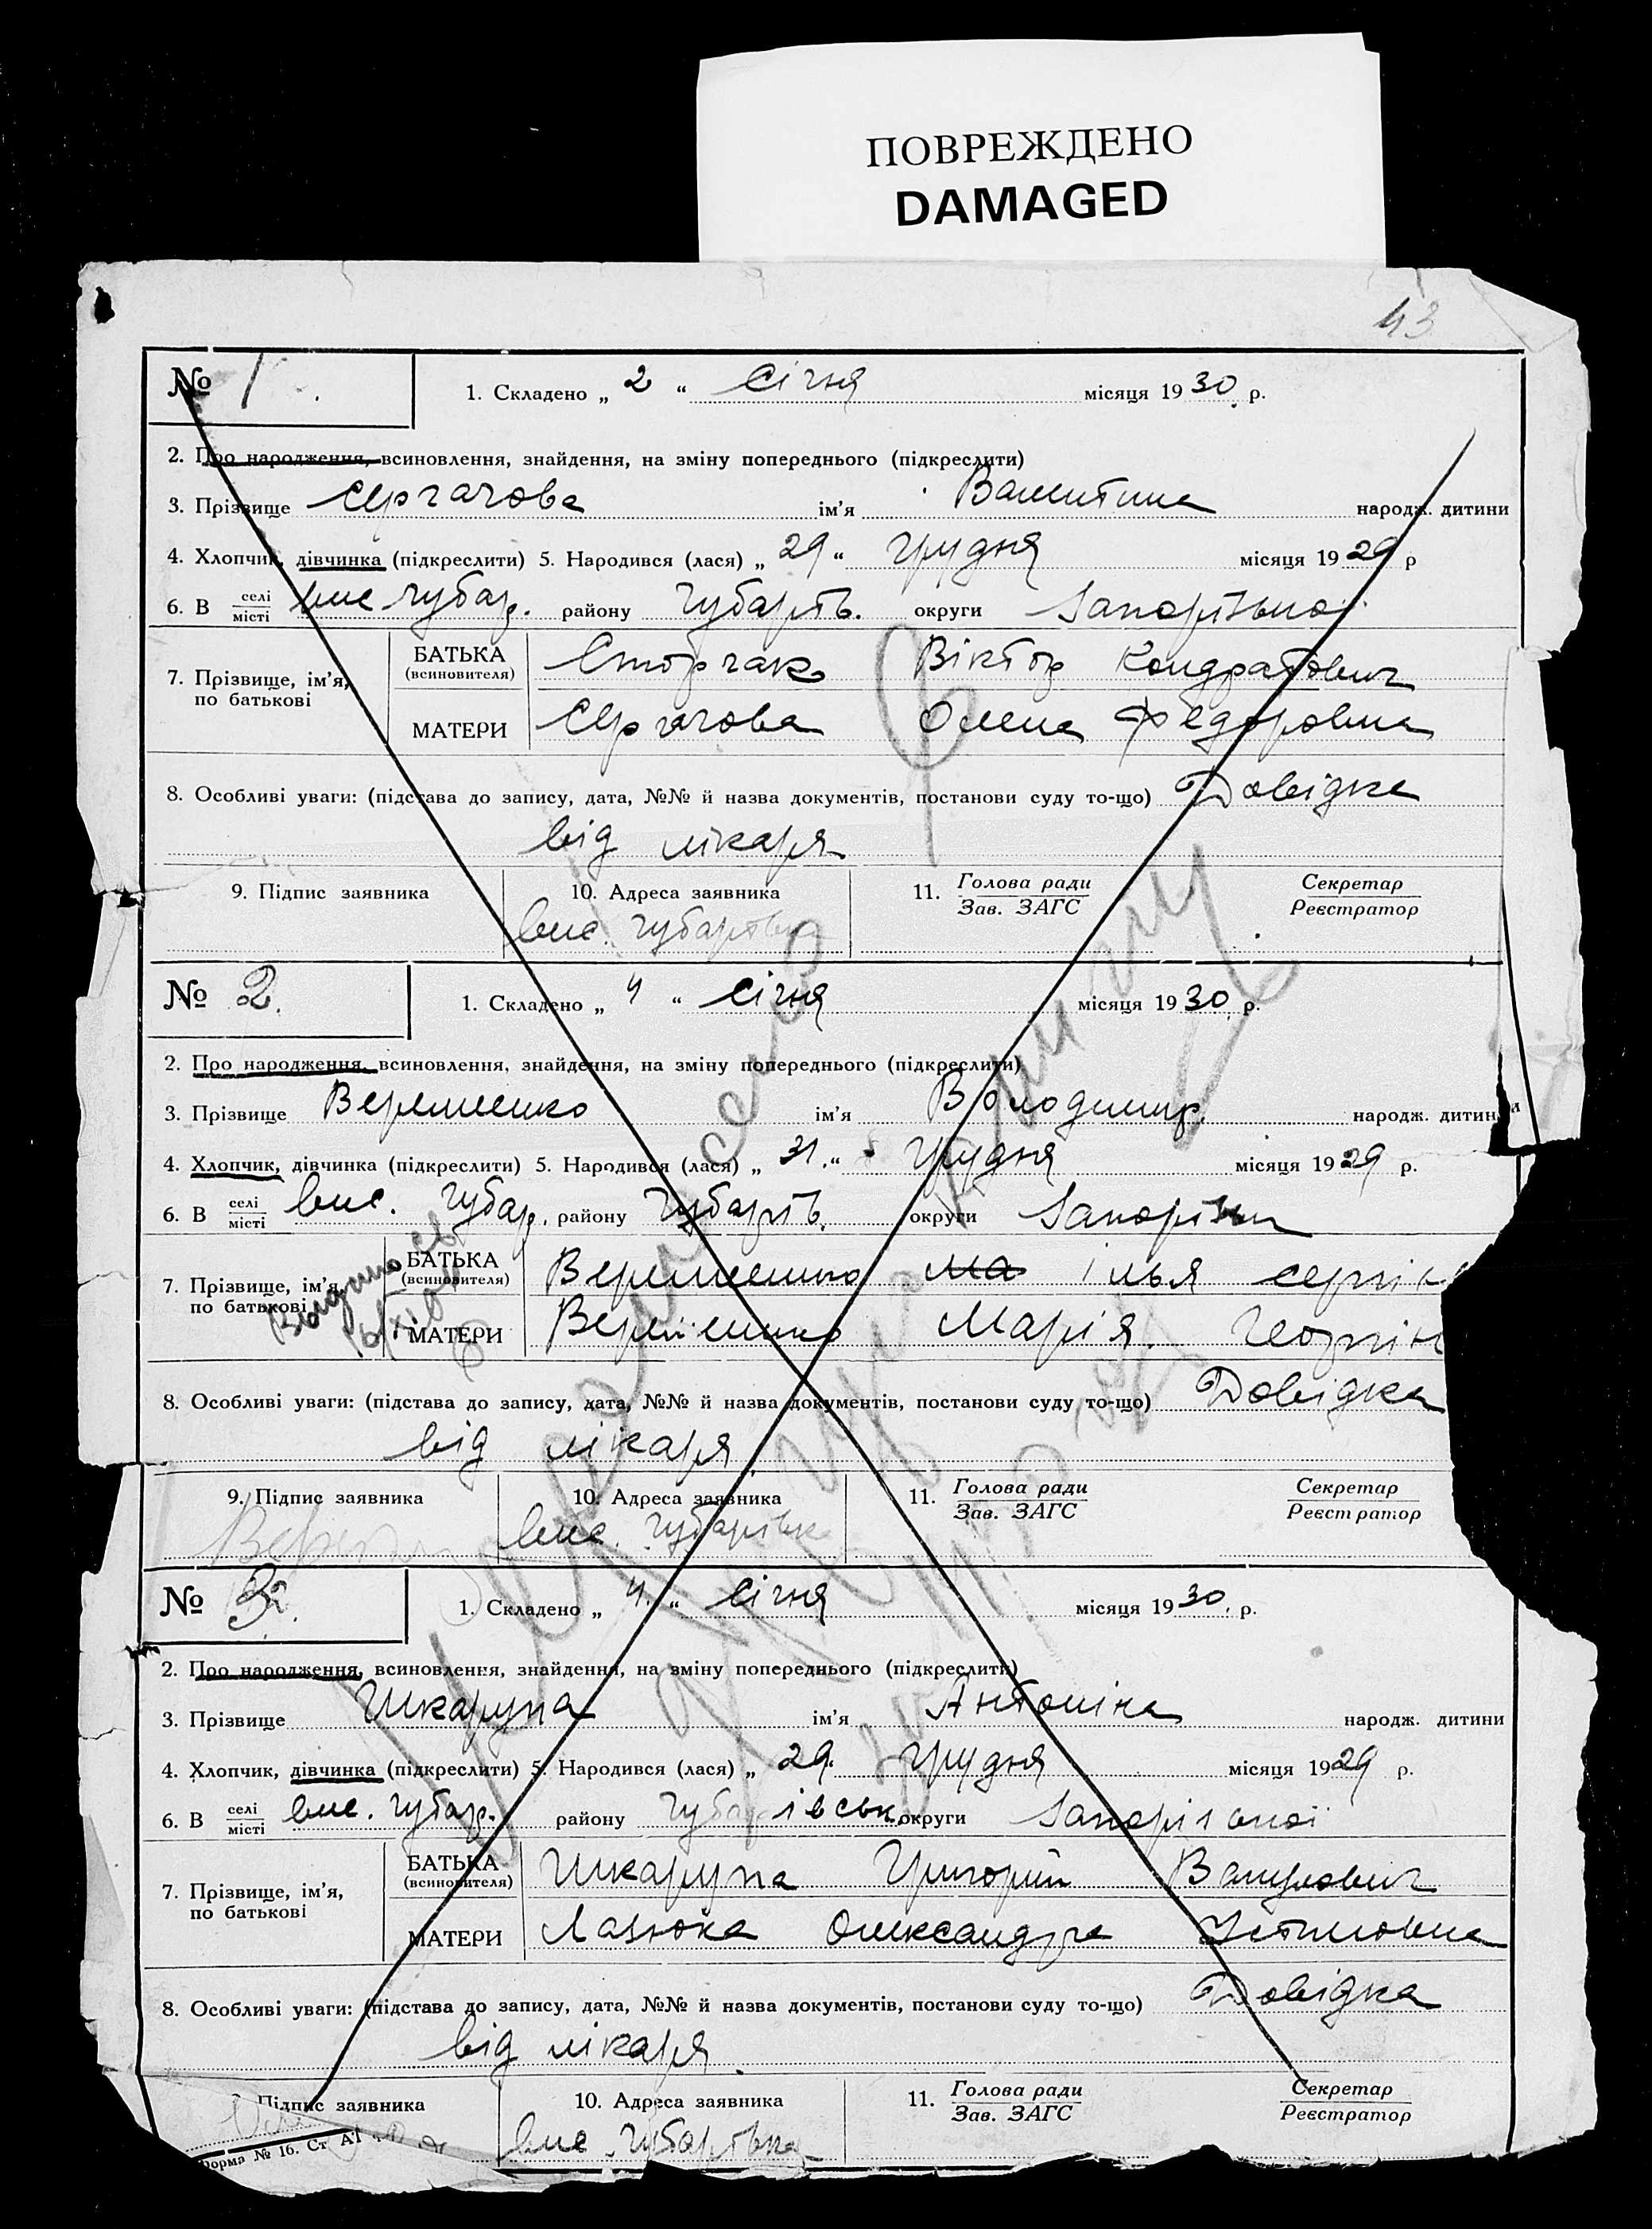 ПОВРЕЖДЕНО
DAMAGED
43
№ 1.
1. Складено „ 2 “ Січня місяця 1930 р.
2. Про народження, всиновлення, знайдення, на зміну попереднього (підкреслити)
3. Прізвище Сергачова ім'я Валентина народж. дитини
4. Хлопчик, дівчинка (підкреслити) 5. Народився (лася) „ 29 “ грудня місяця 1929 р
6. В селі/місті вис Губар. району Губарів. округи Запорізької
7. Прізвище, ім'я, по батькові
БАТЬКА (всиновителя) Сторчак Віктор Кондратович
МАТЕРИ Сергачова Олена Федоровна
8. Особливі уваги: (підстава до запису, дата, №№ й назва документів, постанови суду то-що) Довідка
від лікаря
9. Підпис заявника 10. Адреса заявника 11. Голова ради/Зав. ЗАГС Секретар/Реєстратор
вис. Губарівка
№ 2.
1. Складено „ 4 “ Січня місяця 1930 р.
2. Про народження, всиновлення, знайдення, на зміну попереднього (підкреслити)
3. Прізвище Веременко ім'я Володимир народж. дитини
4. Хлопчик, дівчинка (підкреслити) 5. Народився (лася) „ 31. “ грудня місяця 1929 р.
6. В селі/місті вис. Губар. району Губарів. округи Запорізьк
7. Прізвище, ім'я, по батькові
БАТЬКА (всиновителя) Веременко ма ілья сергі
МАТЕРИ Веременко Марія Георгі
8. Особливі уваги: (підстава до запису, дата, №№ й назва документів, постанови суду то-що) Довідка
від лікаря.
9. Підпис заявника 10. Адреса заявника 11. Голова ради/Зав. ЗАГС Секретар/Реєстратор
вис. Губарівка
№ 3.
1. Складено „ 4. “ Січня місяця 1930. р.
2. Про народження, всиновлення, знайдення, на зміну попереднього (підкреслити)
3. Прізвище Шкарупа ім'я Антоніна народж. дитини
4. Хлопчик, дівчинка (підкреслити) 5. Народився (лася) „ 29 “ грудня місяця 1929 р.
6. В селі/місті вис. Губар. району Губарівськ. округи Запорізької
7. Прізвище, ім'я, по батькові
БАТЬКА (всиновителя) Шкарупа Григорій
МАТЕРИ Лазюка Олександра Устимовна
8. Особливі уваги: (підстава до запису, дата, №№ й назва документів, постанови суду то-що) Довідка
від лікаря.
Підпис заявника 10. Адреса заявника 11. Голова ради/Зав. ЗАГС Секретар/Реєстратор
вис. Губарівка
Форма № 16. Ст. А1